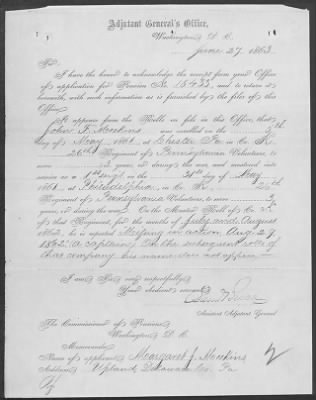 Adjutant General's Office,
Washington, D. C.
June 27, 1863.
Sir:
I have the honor to acknowledge the receipt from your Office
of application for Pension No. 15433, and to return it
herewith, with such information as is furnished by the files of this
Office.
It appears from the Rolls on file in this Office, that
John F. Hawkins was enrolled on the
day of May 1861, at Chester Pa in Co. K,
26th Regiment of Pennsylvania Volunteers, to
serve 3 years, or during the war, and mustered into
service as a 1st Sergt on the day of May
1861, at Philadelphia, in Co. K, 26th
Regiment of Pennsylvania Volunteers, to serve 3
years, or during the war. On the Muster Roll of Co. K
of that Regiment, for the months of July and August
1862, he is reported Missing in action Aug. 29
1862. a Captain, On the subsequent rolls of
this company his name does not appear
I am, Sir, very respectfully,
Your obedient servant,
Assistant Adjutant General.
The Commissioner of Pensions,
Washington, D. C.
Memoranda:
Name of applicant, Margaret J. Hawkins
Address, Upland, Delaware Co. Pa